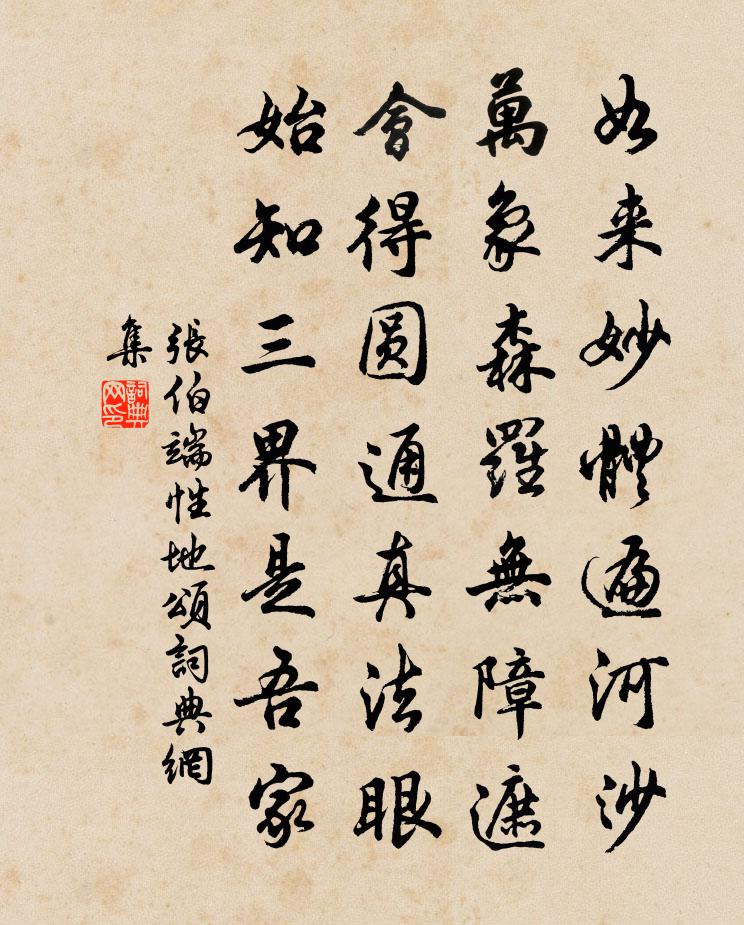 如来妙體遍河沙
萬象森羅無障遮
會得圓通真法眼
始知三界是吾家
張伯端性地頌詞典網
集
詞典網印